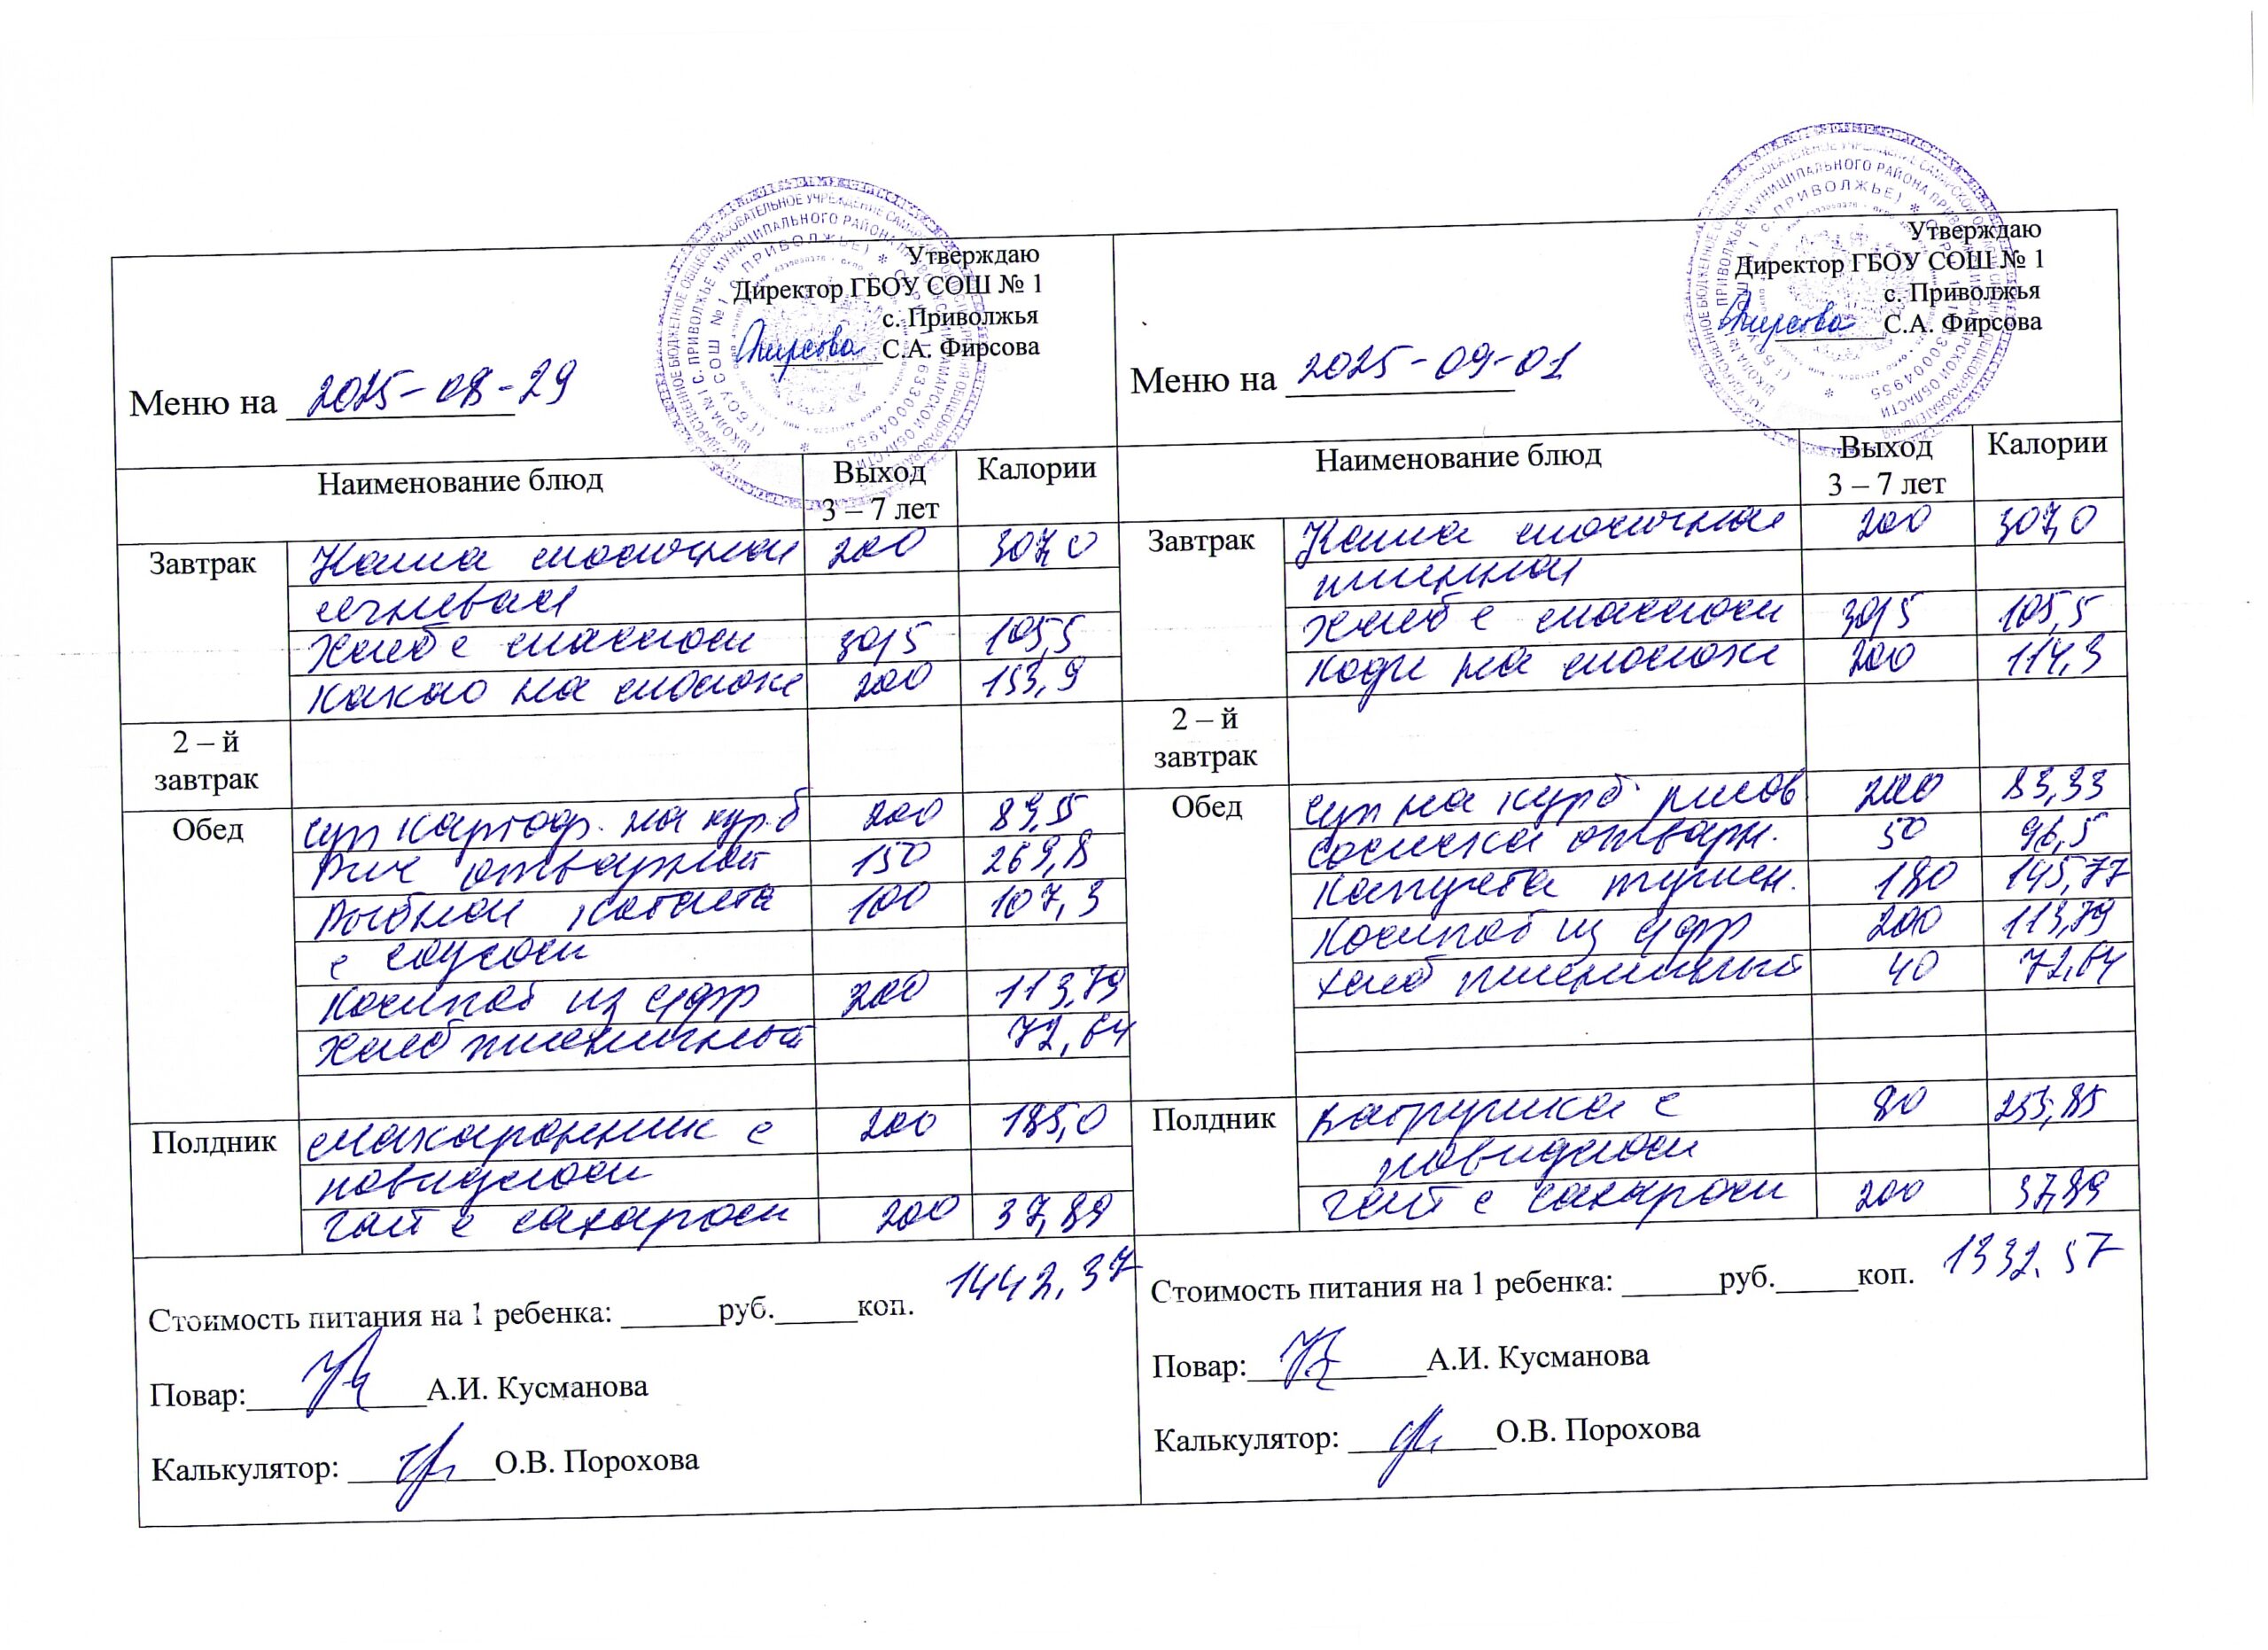 Утверждаю
Директор ГБОУ СОШ № 1
с. Приволжья
С.А. Фирсова
Меню на 2025-08-29
Наименование блюд Выход 3 – 7 лет Калории
Завтрак Каша молочная 200 307,0
ячневая
Хлеб с маслом 30/5 105,5
Какао на молоке 200 153,9
2 – й завтрак
Обед Суп картоф. на кур.б 200 89,55
Рис отварной 150 269,8
Рыбная котлета 100 107,3
с соусом
Компот из с/фр 200 113,79
Хлеб пшеничный 72,64
Полдник Макаронник с 200 185,0
повидлом
Чай с сахаром 200 37,89
1442,37
Стоимость питания на 1 ребенка: ______руб._____коп.
Повар:___________А.И. Кусманова
Калькулятор: _________О.В. Порохова
Утверждаю
Директор ГБОУ СОШ № 1
с. Приволжья
С.А. Фирсова
Меню на 2025-09-01
Наименование блюд Выход 3 – 7 лет Калории
Завтрак Каша молочная 200 307,0
пшенная
Хлеб с маслом 30/5 105,5
Кофе на молоке 200 114,3
2 – й завтрак
Обед Суп на кур.б рисов 200 83,33
Сосиска отварн. 50 96,5
Капуста тушен. 180 145,77
Компот из с/фр 200 113,79
Хлеб пшеничный 40 72,64
Полдник Ватрушка с 80 255,85
повидлом
Чай с сахаром 200 37,89
1332.57
Стоимость питания на 1 ребенка: ______руб._____коп.
Повар:___________А.И. Кусманова
Калькулятор: _________О.В. Порохова